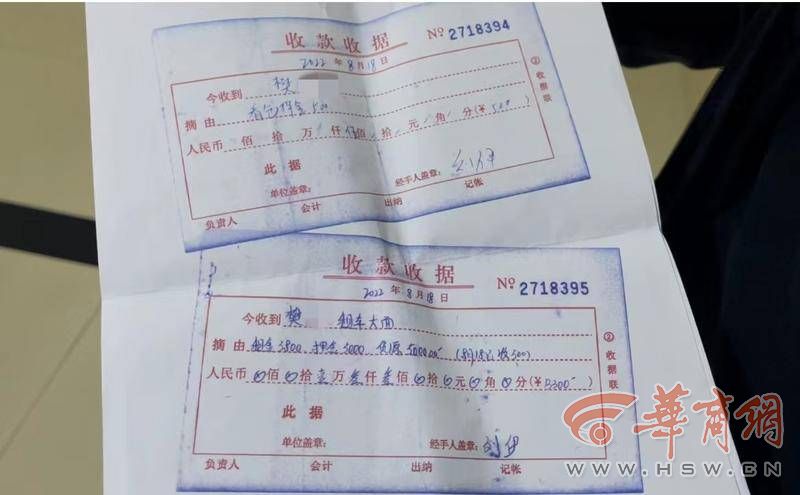 收款收据 №2718394
2022年8月18日
今收到 樊
摘由 看包押金500
人民币 佰 拾 万 仟 佰 拾 元 角 分(¥500)
此据
②收据联
单位盖章: 经手人盖章:
负责人 会计 出纳 记帐
收款收据 №2718395
2022年8月18日
今收到 樊 租车大面
摘由 租金3800 押金5000 货源5000.00 (8月18已收500)
人民币 0佰0拾壹万叁仟叁佰0拾0元0角0分(¥13300)
此据
②收据联
单位盖章: 经手人盖章: 刘伊
负责人 会计 出纳 记帐
华商网
WWW.HSW.CN